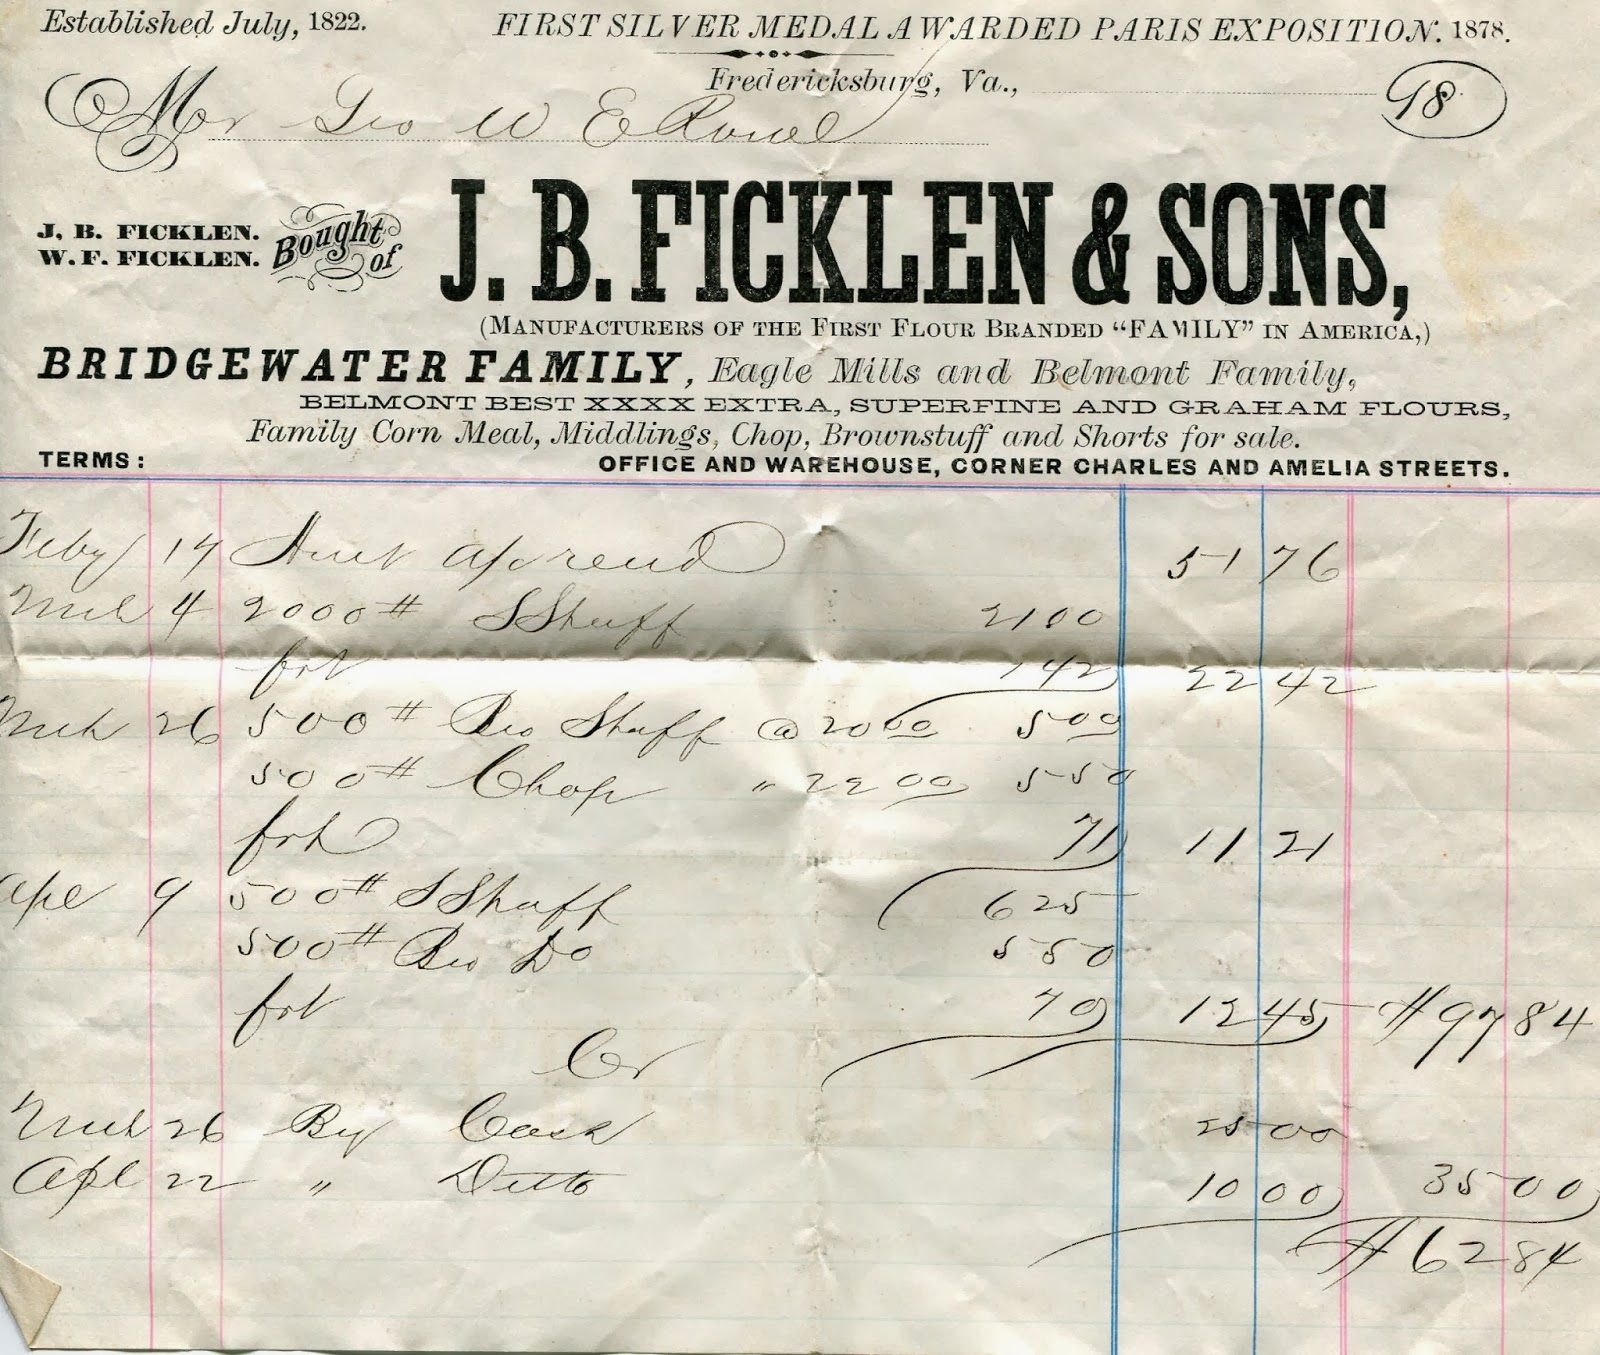 Established July, 1822. FIRST SILVER MEDAL AWARDED PARIS EXPOSITION. 1878.
Fredericksburg, Va., 98
Mr Geo W E Rowe
J. B. FICKLEN.
W. F. FICKLEN.
Bought of
J. B. FICKLEN & SONS,
(MANUFACTURERS OF THE FIRST FLOUR BRANDED "FAMILY" IN AMERICA,)
BRIDGEWATER FAMILY, Eagle Mills and Belmont Family,
BELMONT BEST XXXX EXTRA, SUPERFINE AND GRAHAM FLOURS,
Family Corn Meal, Middlings, Chop, Brownstuff and Shorts for sale.
TERMS: OFFICE AND WAREHOUSE, CORNER CHARLES AND AMELIA STREETS.
Feby 14 a/c rend 51 76
Mch 4 2000# S Stuff 21 00
frt 1 42 22 42
Mch 26 500# Bro Stuff @ 20 00 5 00
500# Chop " 22 00 5 50
frt 71 11 21
Apl 9 500# S Stuff 6 25
500# Bro Do 5 50
frt 70 12 45 $97 84
Cr
Mch 26 By Cash 25 00
Apl 22 " Ditto 10 00 35 00
$62 84